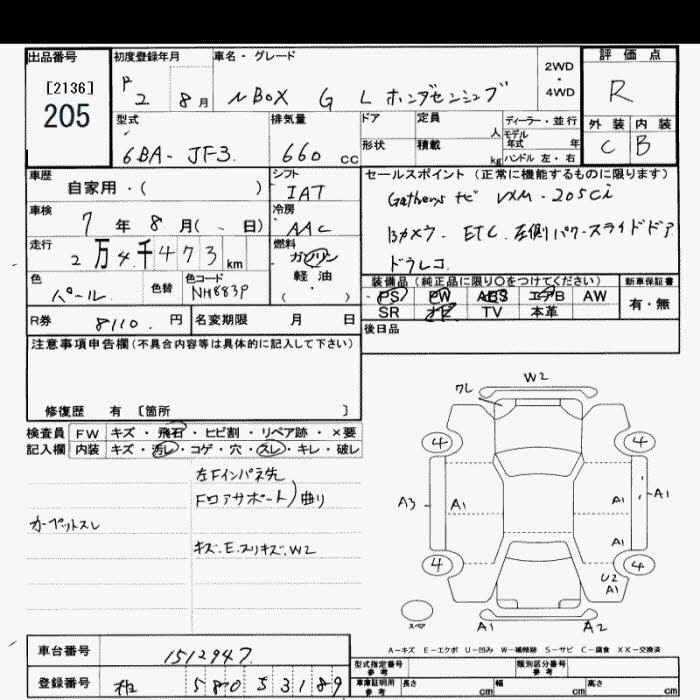 出品番号
[2136]
205
初度登録年月
R 2 8月
車名・グレード
N BOX G L ホンダセンシング
2WD
・
4WD
評価点
R
外装 内装
C B
型式
6BA- JF3
排気量
660 cc
ドア
形状
定員
人
積載
kg
ディーラー・並行
モデル
年式 年
ハンドル 左・右
車歴
自家用・( )
シフト
IAT
セールスポイント(正常に機能するものに限ります)
Gathersナビ VXM-205Ci
Bカメラ. ETC. 左側パワースライドドア
ドラレコ
車検
7年 8月( 日)
冷房
AAC
走行
2万4千473km
燃料
ガソリン
軽・油
( )
色
パール
色替
色コード
NH883P
装備品(純正品に限り〇をつけてください)
新車保証書
PS PW ABS エアB AW
SR ナビ TV 本革
有・無
R券
8110. 円
名変期限 月 日
後日品
注意事項申告欄(不具合内容等は具体的に記入して下さい)
修復歴 有 〔箇所 〕
検査員 FW キズ・飛石・ヒビ割・リペア跡・×要
記入欄 内装 キズ・汚レ・コゲ・穴・スレ・キレ・破レ
左Fインパネ先
Fロアサポート)曲り
カーペットスレ
キズ.E.スリキズ.W2
W2
ワレ
4 4
A3 A1 A1 A1
A1
4 4
U2
A1
スペア
A1 A2
A−キズ E−エクボ U−凹み W−補修跡 S−サビ C−腐食 XX−交換済
車台番号
1512947
登録番号
580 5 3189
型式指定番号
参考
類別区分番号
参考
車庫証明用
参考
長さ cm 幅 cm 高さ cm